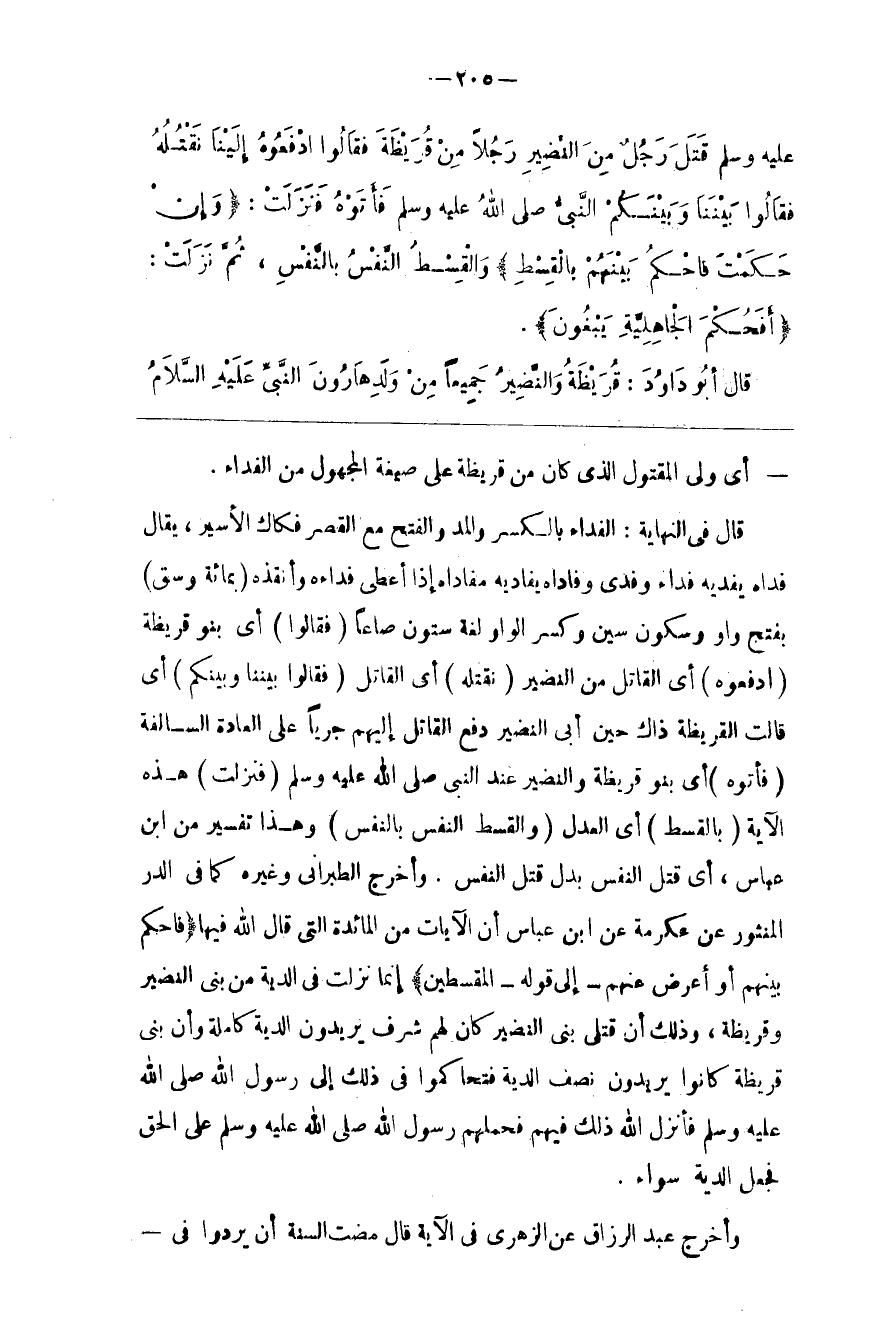 — ٢٠٥ —
عليه وسلم قَتَلَ رَجُلٌ مِنَ النَّضِيرِ رَجُلاً مِنْ قُرَيْظَةَ فَقَالُوا ادْفَعُوهُ إِلَيْنَا نَقْتُلُهُ
فقَالُوا بَيْنَنَا وَبَيْنَكُمْ النَّبِىُّ صلى اللهُ عليه وسلم فَأَتَوْهُ فَنَزَلَتْ : ﴿ وَإِنْ
حَكَمْتَ فَاحْكُمْ بَيْنَهُمْ بِالْقِسْطِ ﴾ وَالْقِسْطُ النَّفْسُ بالنَّفْسِ ، ثُمَّ نَزَلَتْ :
﴿ أَفَحُكْمَ الْجَاهِلِيَّةِ يَبْغُونَ ﴾ .
قال أَبُو دَاوُدَ : قُرَيْظَةُ وَالنَّضِيرُ جَمِيعاً مِنْ وَلَدِ هَارُونَ النَّبِىِّ عَلَيْهِ السَّلَامُ
— أى ولى المقتول الذى كان من قريظة على صيغة المجهول من الفداء .
قال فى النهاية : الفداء بالكسر والمد والفتح مع القصر فكاك الأسير ، يقال
فداه يفديه فداء وفدى وفاداه يفاديه مفاداه إذا أعطى فداءه وأنقذه ( بمائة وسق )
بفتح واو وسكون سين وكسر الواو لغة ستون صاعاً ( فقالوا ) أى بنو قريظة
( ادفعوه ) أى القاتل من النضير ( نقتله ) أى القاتل ( فقالوا بيننا وبينكم ) أى
قالت القريظة ذاك حين أبى النضير دفع القاتل إليهم جرياً على العادة السالفة
( فأتوه ) أى بنو قريظة والنضير عند النبى صلى الله عليه وسلم ( فنزلت ) هذه
الآية ( بالقسط ) أى العدل ( والقسط النفس بالنفس ) وهذا تفسير من ابن
عباس ، أى قتل النفس بدل قتل النفس . وأخرج الطبرانى وغيره كما فى الدر
المنثور عن عكرمة عن ابن عباس أن الآيات من المائدة التى قال الله فيها ﴿ فاحكم
بينهم أو أعرض عنهم – إلى قوله – المقسطين ﴾ إنما نزلت فى الدية من بنى النضير
وقريظة ، وذلك أن قتلى بنى النضير كان لهم شرف يريدون الدية كاملة وأن بنى
قريظة كانوا يريدون نصف الدية فتحاكموا فى ذلك إلى رسول الله صلى الله
عليه وسلم فأنزل الله ذلك فيهم فحملهم رسول الله صلى الله عليه وسلم على الحق
فجعل الدية سواء .
وأخرج عبد الرزاق عن الزهرى فى الآية قال مضت السنة أن يردوا فى —